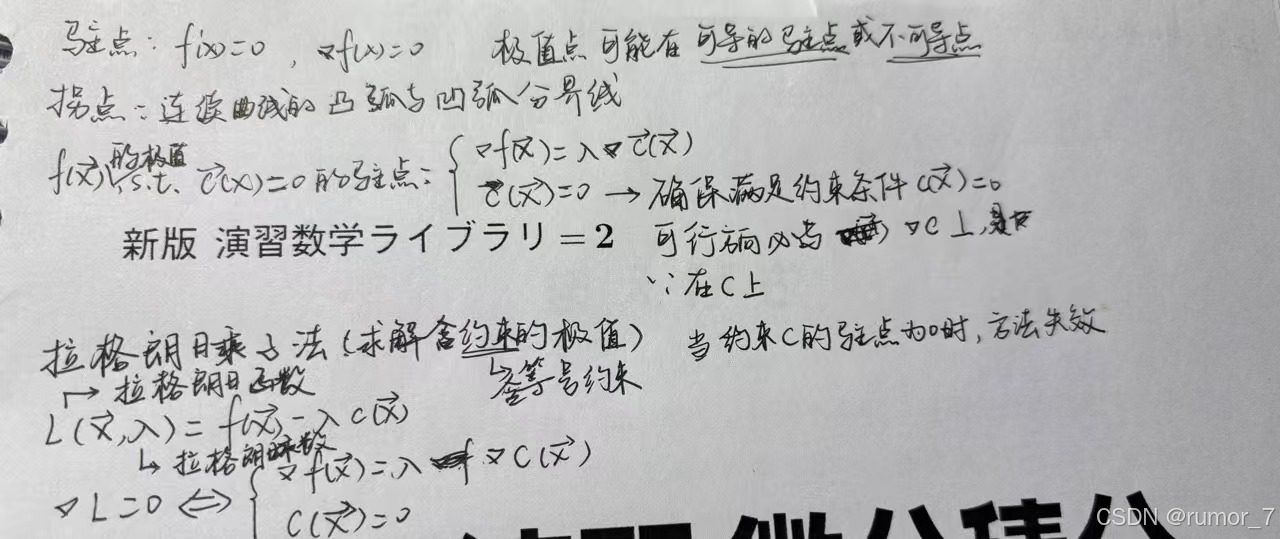 驻点: f'(x)=0, ∇f(x)=0 极值点可能在可导的驻点或不可导点
拐点: 连续曲线的凸弧与凹弧分界线
的极值
f(x⃗), s.t. c⃗(x)=0 的驻点: { ∇f(x⃗)=λ∇c⃗(x⃗)
c⃗(x⃗)=0 → 确保满足约束条件 c(x⃗)=0
新版 演習数学ライブラリ=2 可行方向必与 ∇c⊥,
∵在C上
拉格朗日乘子法(求解含约束的极值) 当约束C的驻点为0时,方法失效
↱ 拉格朗日函数 ↳ 含等号约束
L(x⃗,λ)= f(x⃗)-λc(x⃗)
↳ 拉格朗日乘数
∇L=0 ⇔ { ∇f(x⃗)=λ∇c(x⃗)
c(x⃗)=0
微分積分
CSDN @rumor_7